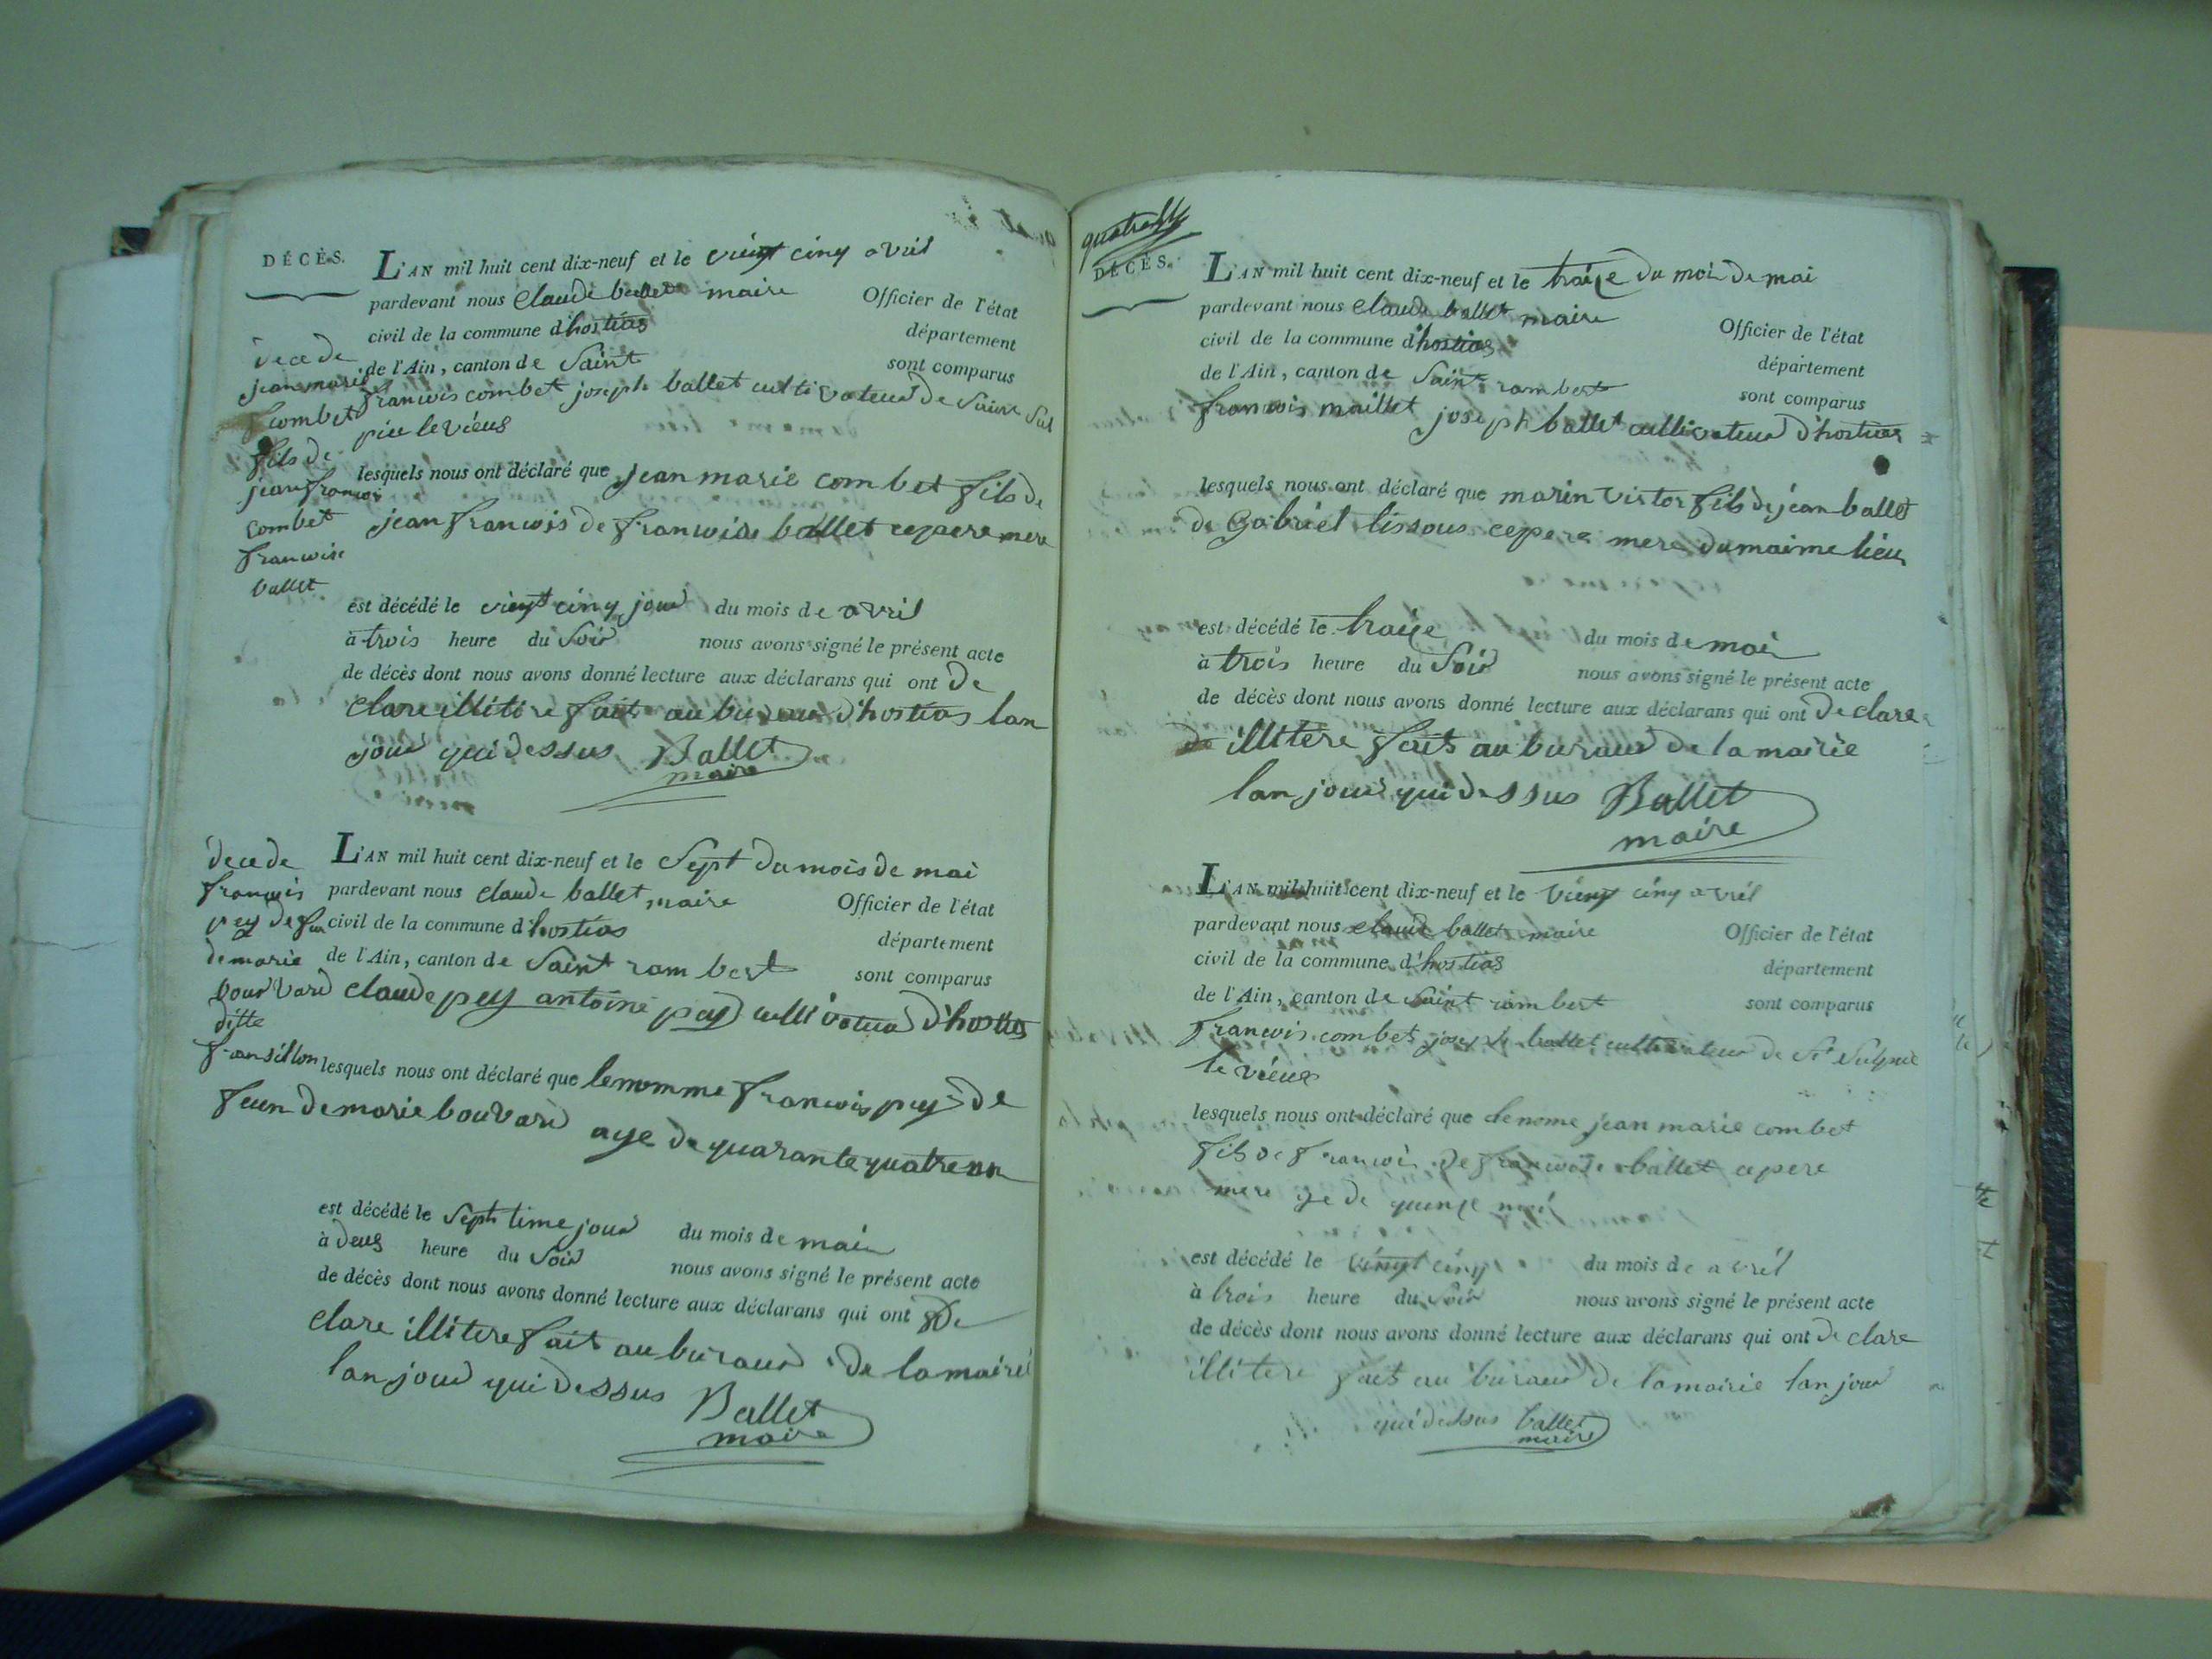 DÉCÈS.
L'AN mil huit cent dix-neuf et le vingt cinq avril
pardevant nous Claude ballet maire Officier de l'état
civil de la commune d'hostias département
de l'Ain, canton de Saint sont comparus
francois combet joseph ballet cultivateur de Saint Sul
pice le vieus
lesquels nous ont déclaré que jean marie combet fils de
jean francois de francoise ballet ce pere mere
est décédé le vingt cinq jour du mois de avril
à trois heure du Soir nous avons signé le présent acte
de décès dont nous avons donné lecture aux déclarans qui ont de
clare illitire fait au buraux d'hostias lan
jour qui dessus Ballet
maire
decede
jean marie
combet
fils de
jean francois
combet
francoise
ballet
decede
francois
pey de
de marie
bouvard
ditte
fransillon
L'AN mil huit cent dix-neuf et le Sept du mois de mai
pardevant nous claude ballet maire Officier de l'état
civil de la commune d'hostias département
de l'Ain, canton de Saint rambert sont comparus
claude pey antoine pey cultivateur d'hostias
lesquels nous ont déclaré que le nomme francois pey de
feu de marie bouvard age de quarante quatre an
est décédé le Septtime jour du mois de mai
à deus heure du Soir nous avons signé le présent acte
de décès dont nous avons donné lecture aux déclarans qui ont de
clare illitere fait au buraux de la mairie
lan jour qui dessus Ballet
maire
DÉCÈS.
L'AN mil huit cent dix-neuf et le traize du moi de mai
pardevant nous claude ballet maire Officier de l'état
civil de la commune d'hostias département
de l'Ain, canton de Saint rambert sont comparus
francois maillet joseph ballet cultivateur d'hostias
lesquels nous ont déclaré que marin victor fils de jean ballet
de Gabriel tissous ce pere mere du maime lieu
est décédé le traize du mois de mai
à trois heure du Soir nous avons signé le présent acte
de décès dont nous avons donné lecture aux déclarans qui ont declare
illitere fait au buraux de la mairie
lan jour qui dessus Ballet
maire
L'AN mil huit cent dix-neuf et le vingt cinq avril
pardevant nous claude ballet maire Officier de l'état
civil de la commune d'hostias département
de l'Ain, canton de Saint rambert sont comparus
francois combet joseph ballet cultivateur de St Sulpice
le vieus
lesquels nous ont déclaré que le nome jean marie combet
fils de francois de francoise ballet ce pere
mere age de quinze moi
est décédé le vingt cinq du mois de avril
à trois heure du Soir nous avons signé le présent acte
de décès dont nous avons donné lecture aux déclarans qui ont de clare
illitere fait au buraux de la mairie lan jour
qui dessus ballet
maire